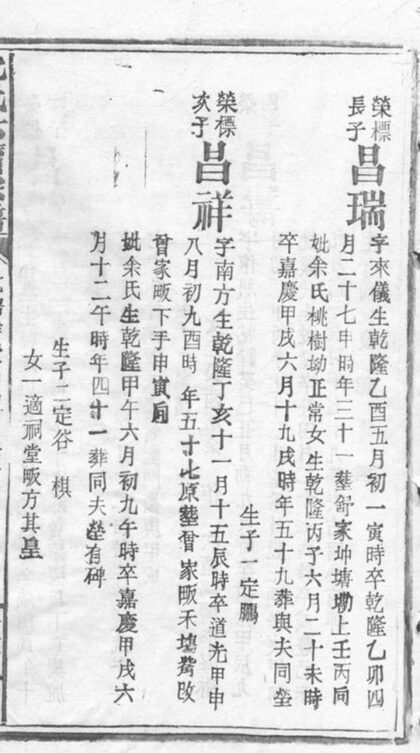 榮標
長子
昌瑞
字來儀生乾隆乙酉五月初一寅時卒乾隆乙卯四
月二十七申時年三十一塟舒家坤塘墈上壬丙向
妣余氏桃樹坳正常女生乾隆丙子六月二十未時
卒嘉慶甲戌六月十九戌時年五十九葬與夫同塋
生子一定鵬
榮標
次子
昌祥
字南方生乾隆丁亥十一月十五辰時卒道光甲申
八月初九酉時年五十七原塟曾家畈禾塲
改
曾家畈下手申寅向
妣余氏生乾隆甲午六月初九午時卒嘉慶甲戌六
月十二午時年四十一葬同夫塋有碑
生子二定谷 棋
女一適祠堂畈方其皇